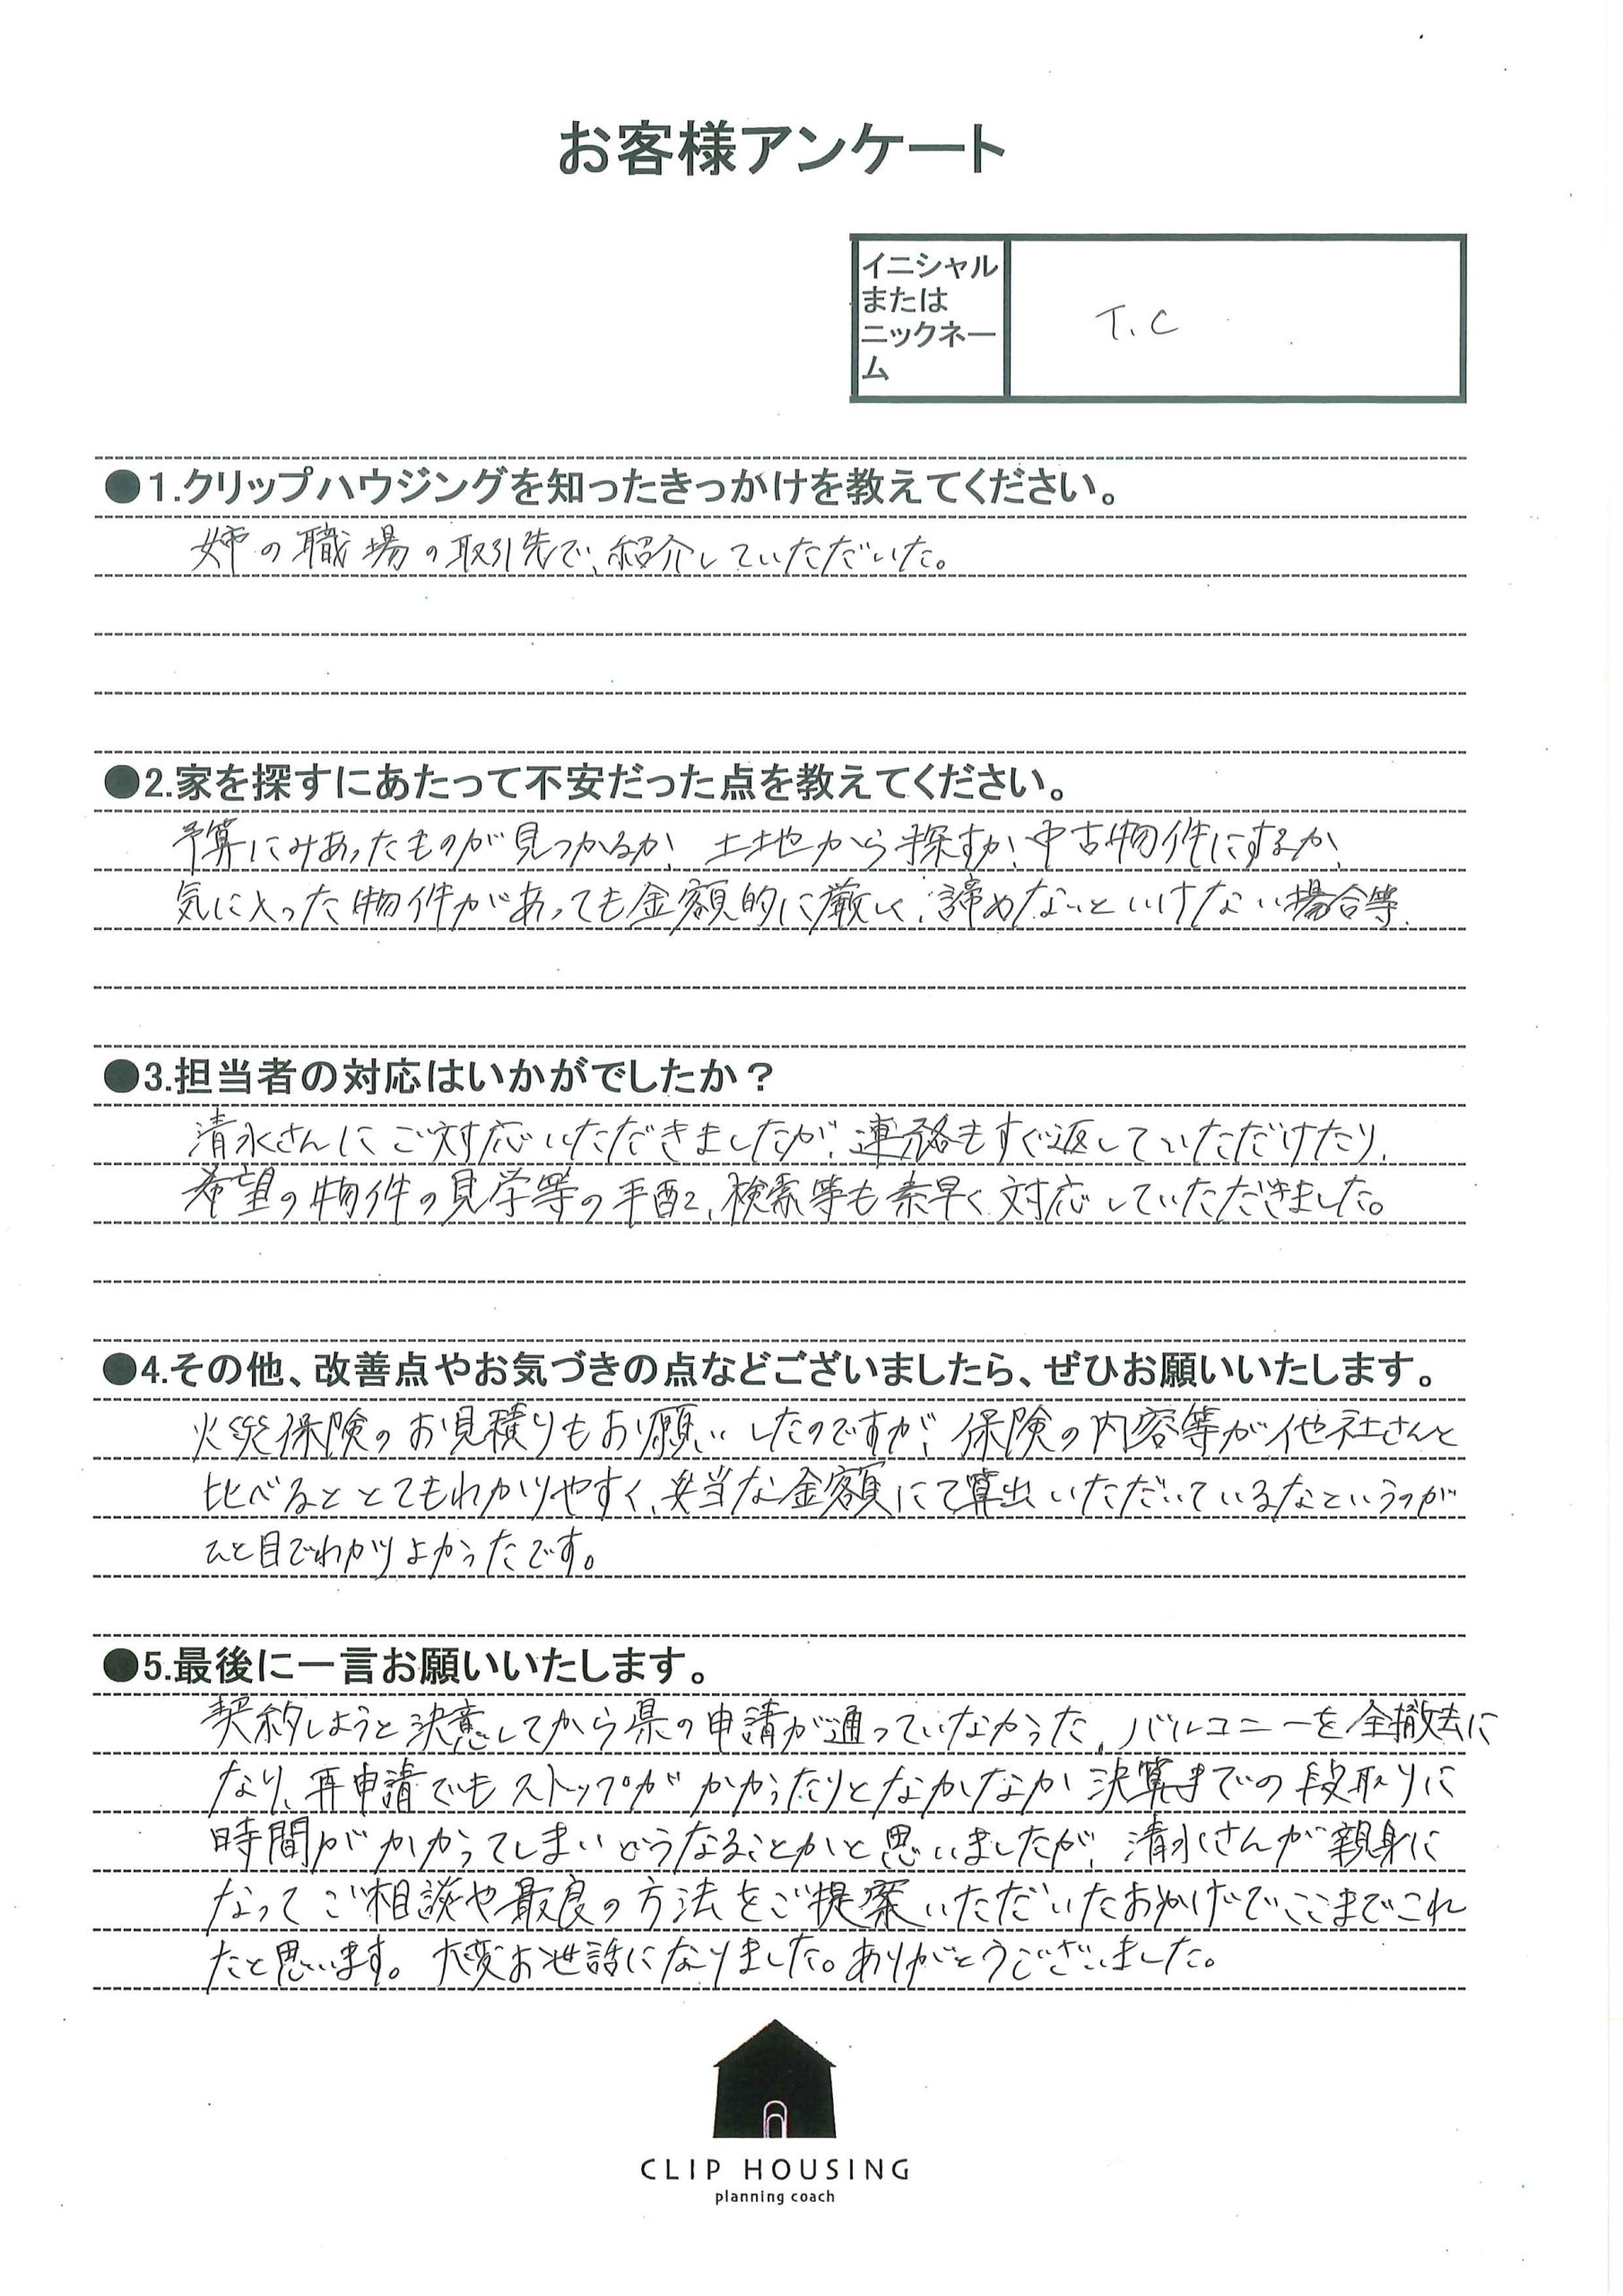 お客様アンケート
イニシャル
または
ニックネー
ム
T.C
●1.クリップハウジングを知ったきっかけを教えてください。
姉の職場の取引先で、紹介していただいた。
●2.家を探すにあたって不安だった点を教えてください。
予算にみあったものが見つかるか、土地から探すか、中古物件にするか、
気に入った物件があっても金額的に厳しく、諦めないといけない場合等、
●3.担当者の対応はいかがでしたか？
清水さんにご対応いただきましたが、連絡もすぐ返していただけたり、
希望の物件の見学等の手配に、検索等も素早く対応していただきました。
●4.その他、改善点やお気づきの点などございましたら、ぜひお願いいたします。
火災保険のお見積りもお願いしたのですが、保険の内容等が他社さんと
比べるととてもわかりやすく、妥当な金額にて算出いただいているなというのが
ひと目でわかりよかったです。
●5.最後に一言お願いいたします。
契約しようと決意してから県の申請が通っていなかった、バルコニーを全撤去に
なり、再申請でもストップがかかったりとなかなか決算までの段取りに
時間がかかってしまいどうなることかと思いましたが、清水さんが親身に
なってご相談や最良の方法をご提案いただいたおかげでここまでこれ
たと思います。大変お世話になりました。ありがとうございました。
CLIP HOUSING
planning coach